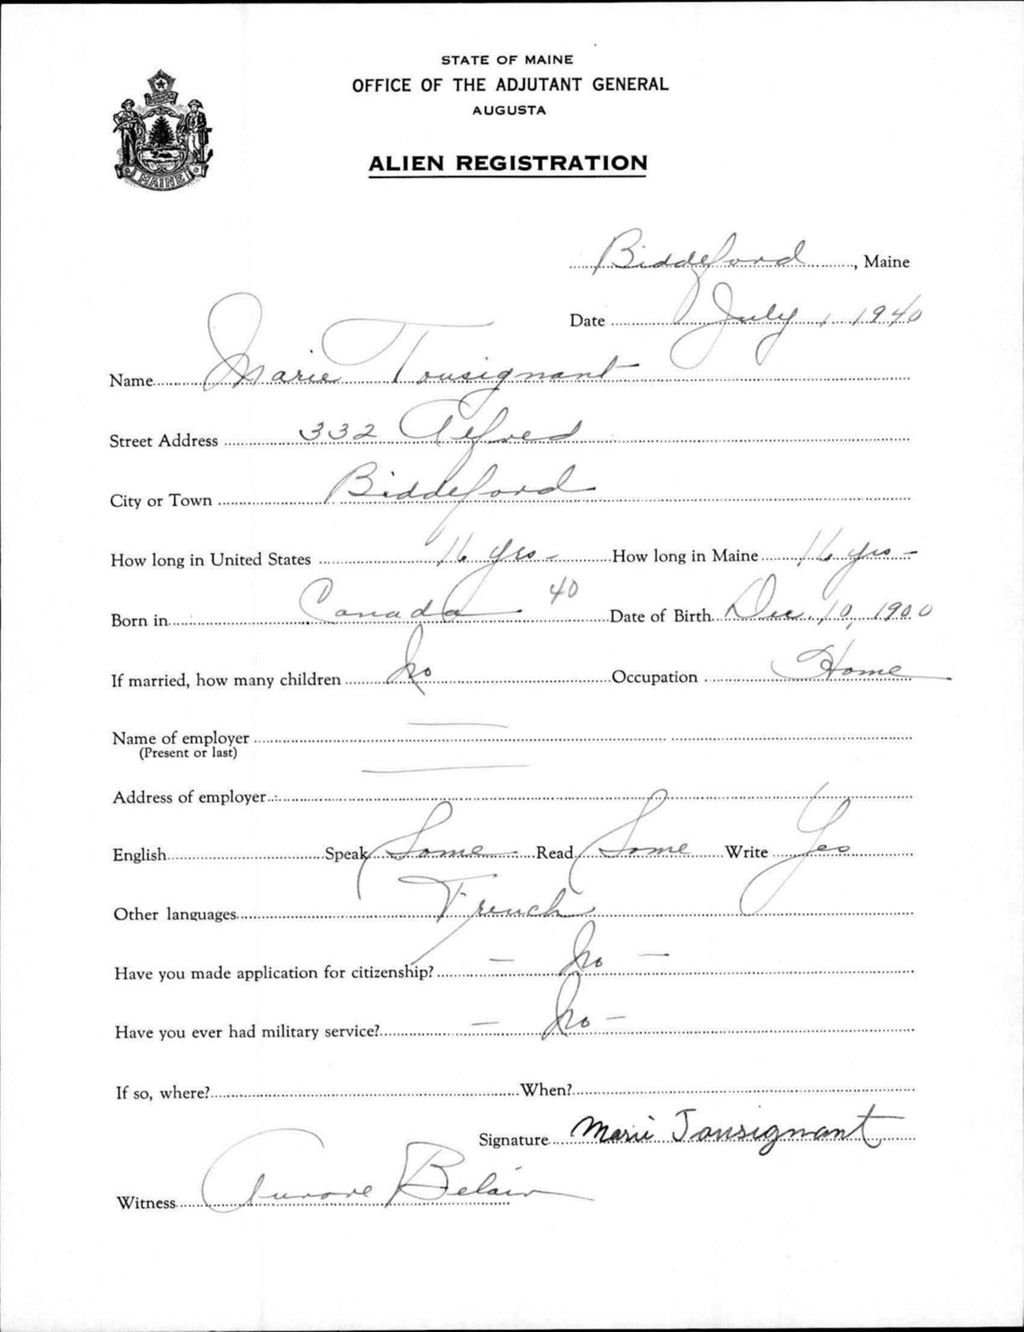 STATE OF MAINE
OFFICE OF THE ADJUTANT GENERAL
AUGUSTA
MAINE
ALIEN REGISTRATION
Biddeford, Maine
Date July 1, 1940
Name Marie Tousignant
Street Address 332 Alfred
City or Town Biddeford
How long in United States 16 yrs - How long in Maine 16 yrs -
Born in Canada 40 Date of Birth Dec. 10, 1900
If married, how many children No Occupation Home
Name of employer
(Present or last)
Address of employer
English Speak Some Read Some Write Yes
Other languages French
Have you made application for citizenship? - No -
Have you ever had military service? - No -
If so, where? When?
Signature Marie Tousignant
Witness Aurore Belair